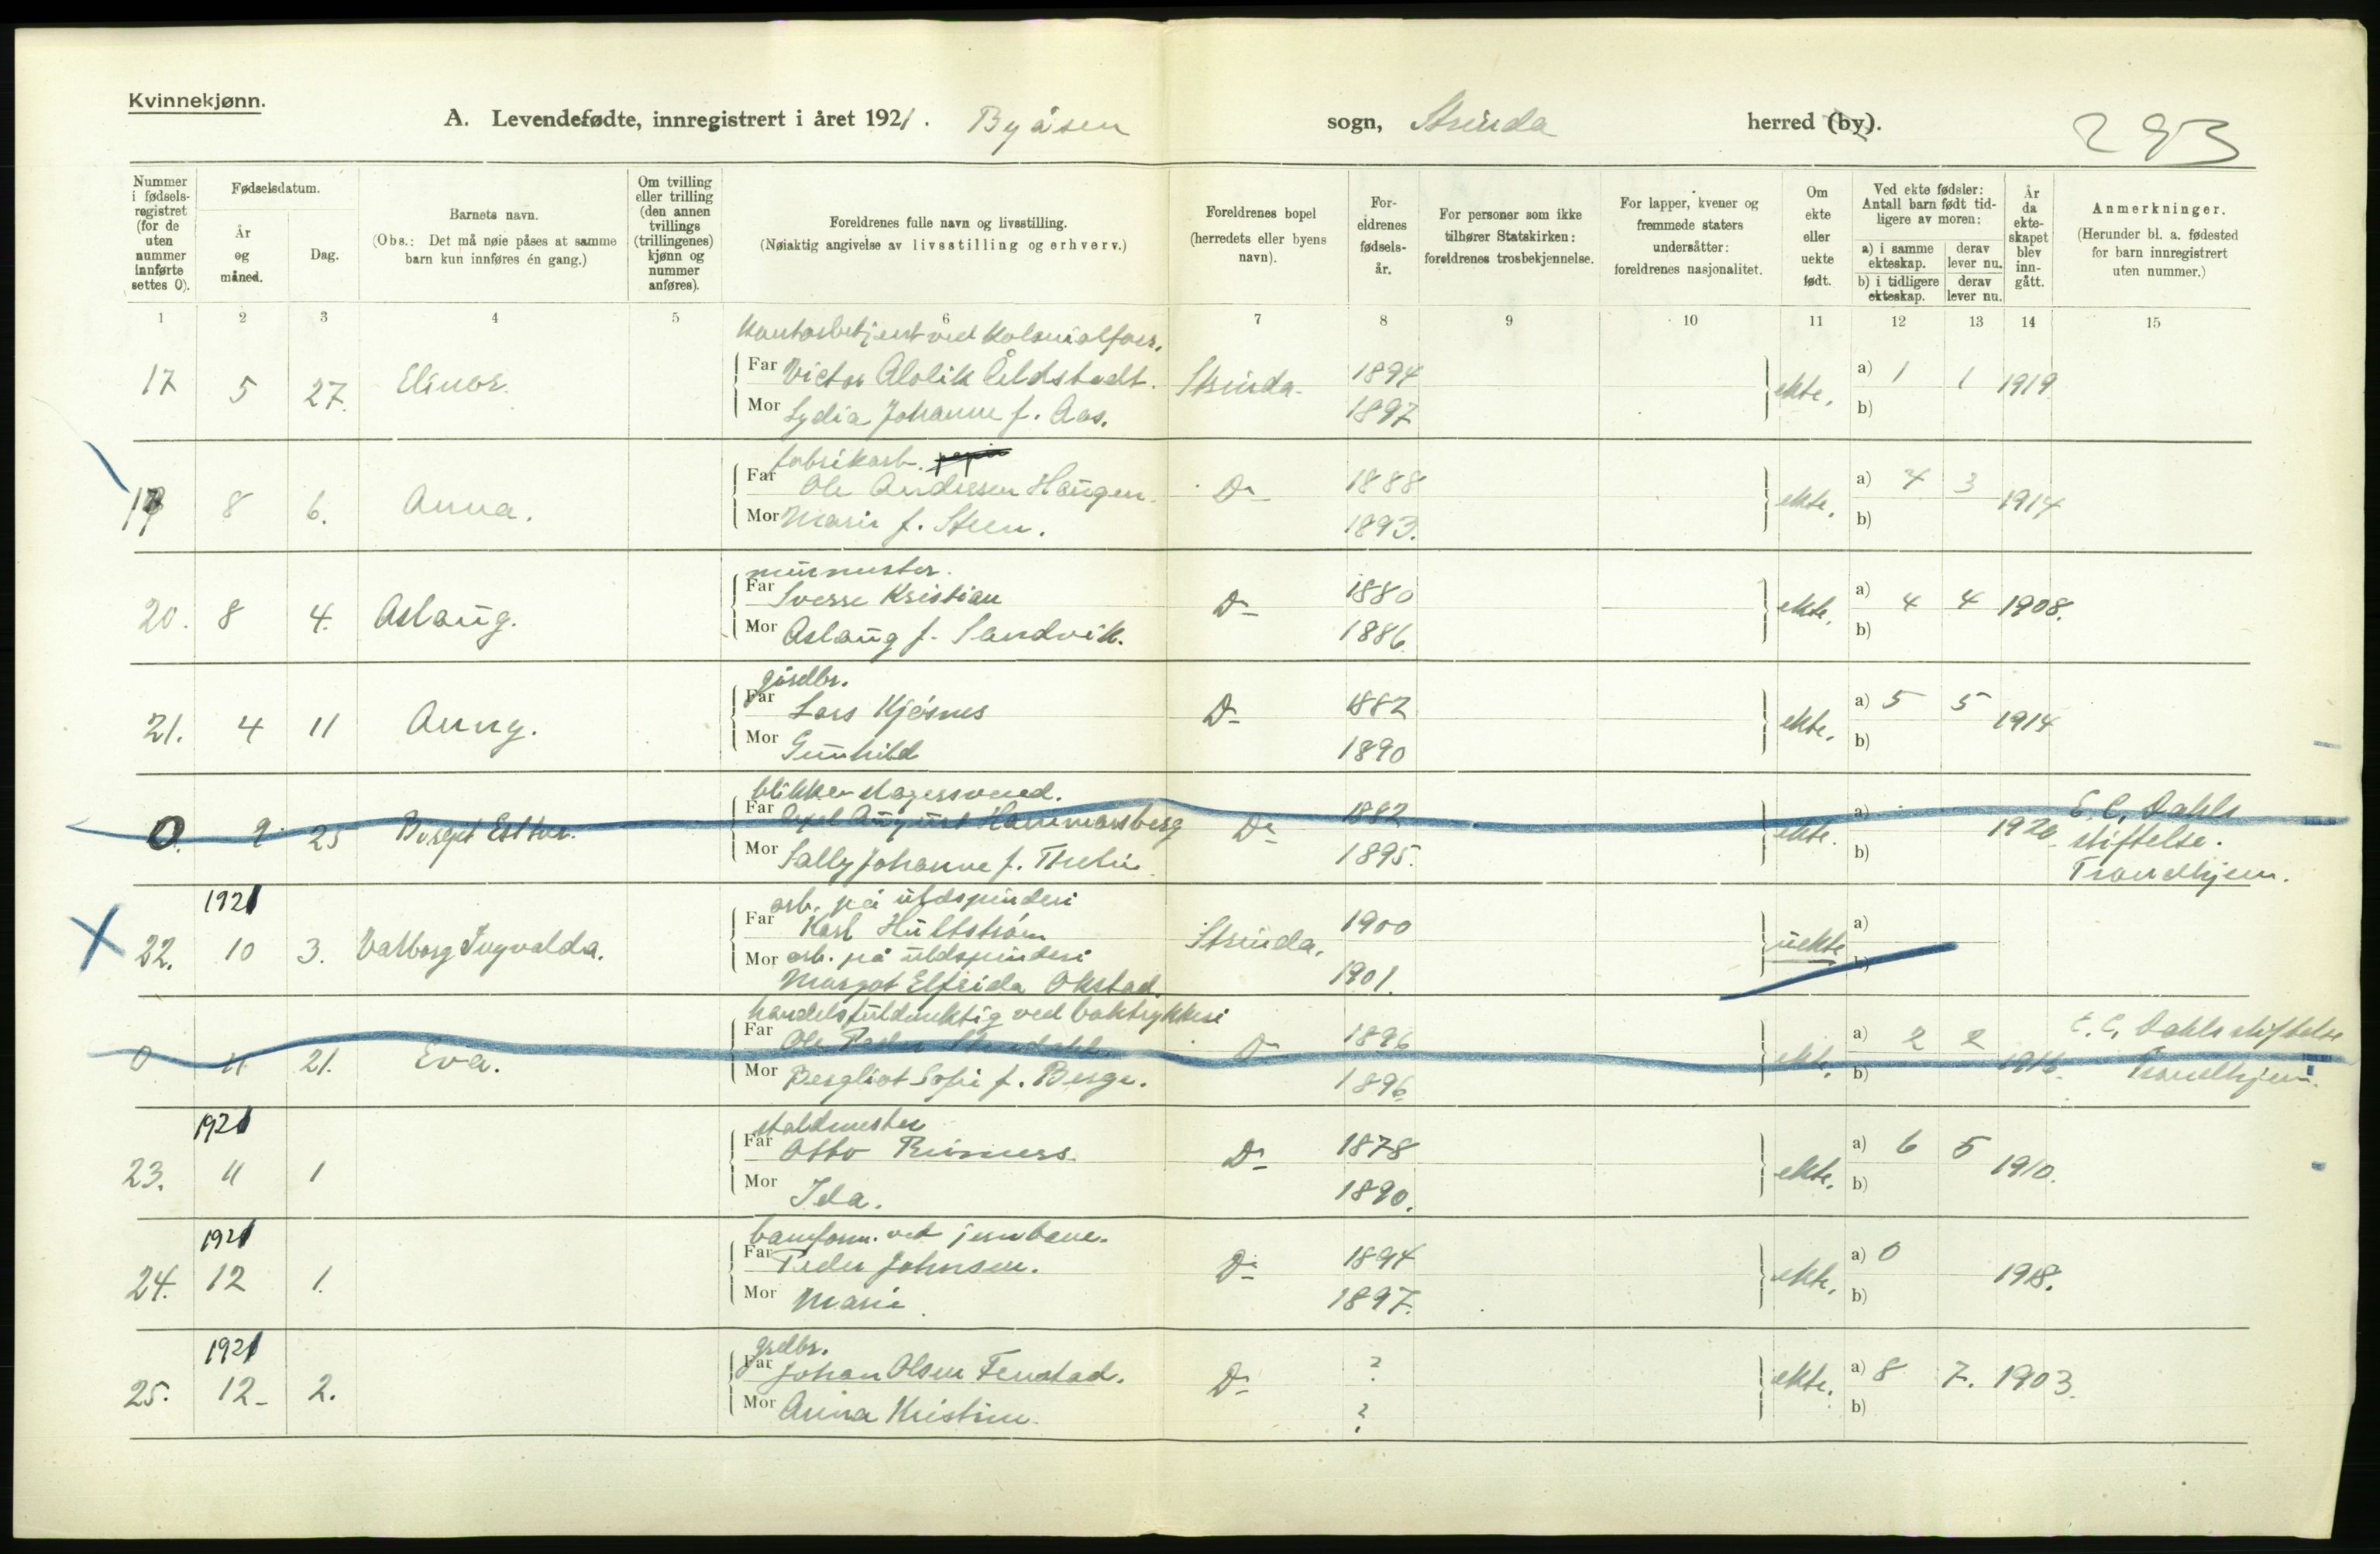 Kvinnekjønn.
A. Levendefødte, innregistrert i året 1921. Byåsen sogn, Strinda herred (by).
293
Nummer i fødsels-registret (for de uten nummer innførte settes 0).
Fødselsdatum.
År og måned.
Dag.
Barnets navn.
(Obs.: Det må nøie påses at samme barn kun innføres én gang.)
Om tvilling eller trilling (den annen tvillings (trillingenes) kjønn og nummer anføres).
Foreldrenes fulle navn og livsstilling.
(Nøiaktig angivelse av livsstilling og erhverv.)
Foreldrenes bopel (herredets eller byens navn).
For-eldrenes fødsels-år.
For personer som ikke tilhører Statskirken: foreldrenes trosbekjennelse.
For lapper, kvener og fremmede staters undersåtter: foreldrenes nasjonalitet.
Om ekte eller uekte født.
Ved ekte fødsler: Antall barn født tid-ligere av moren:
a) i samme ekteskap. derav lever nu.
b) i tidligere ekteskap. derav lever nu.
År da ekte-skapet blev inn-gått.
Anmerkninger.
(Herunder bl. a. fødested for barn innregistrert uten nummer.)
1 2 3 4 5 6 7 8 9 10 11 12 13 14 15
Kontorbetjent ved Kolonialforr.
17 5 27. Elinor. Far Victor Strinda. 1894 ekte. a) 1 1 1919
Mor Lydia Johanne f. Aas. 1897 b)
fabrikarb.
8 6. Anna. Far Ole Andersen Haugen Do 1888 ekte. a) 4 3 1914
Mor Marie f. Steen. 1893. b)
murmester.
20. 8 4. Aslaug. Far Sverre Kristian Do 1880 ekte. a) 4 4 1908.
Mor Aslaug f. Sandvik. 1886 b)
gårdbr.
21. 4 11 Anny. Far Lars Kjøsnes Do 1882 ekte. a) 5 5 1914
Mor Gunhild 1890 b)
blikkenslagersvend.
0. 9 25 Borgst Esther. Far Axel August Hammarsberg Do 1882 ekte. a) 1920. E. C. Dahls stiftelse. Trondhjem.
Mor Sally Johanne f. Thelin 1895. b)
1921 arb. på uldspinderi
22. 10 3. Valborg Ingvalda. Far Karl Hultström Strinda. 1900 uekte a)
Mor arb. på uldspinderi b)
Margot Elfrida Okstad. 1901.
handelsfuldmektig ved boktrykkeri
0 11 21. Eva. Far Ole Peder Do 1896 ekte. a) 2 2 1916. E. C. Dahls stiftelse Trondhjem.
Mor Bergliot Sofie f. Berge. 1896 b)
1921 staldmester
23. 11 1 Far Otto Do 1878 ekte. a) 6 5 1910.
Mor Ida. 1890. b)
1921 baneform. ved jernbane.
24. 12 1. Far Peder Johnsen. Do 1894 ekte. a) 0 1918.
Mor Marie 1897. b)
1921 grdbr.
25. 12 2. Far Johan Olsen Fenstad. Do ? ekte. a) 8 7. 1903.
Mor Anna Kristine. ? b)